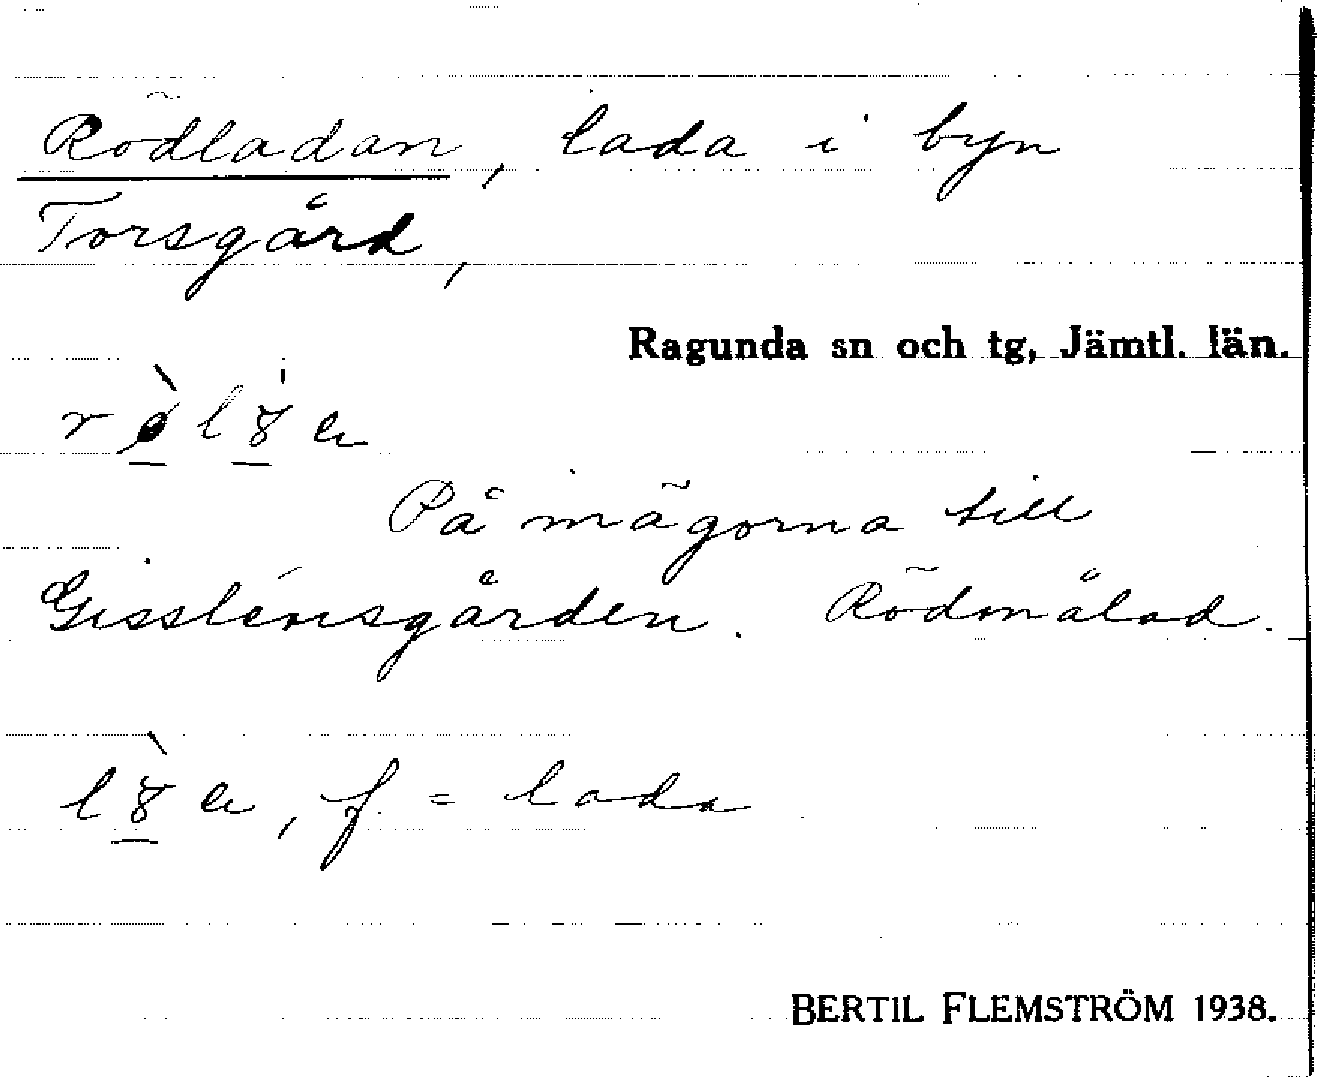 Rödladan, lada i byn
Torsgård,
Ragunda sn och tg, Jämtl. län.
På mägorna till
Gisslénsgården. Rödmålad.
f. = lada
BERTIL FLEMSTRÖM 1938.